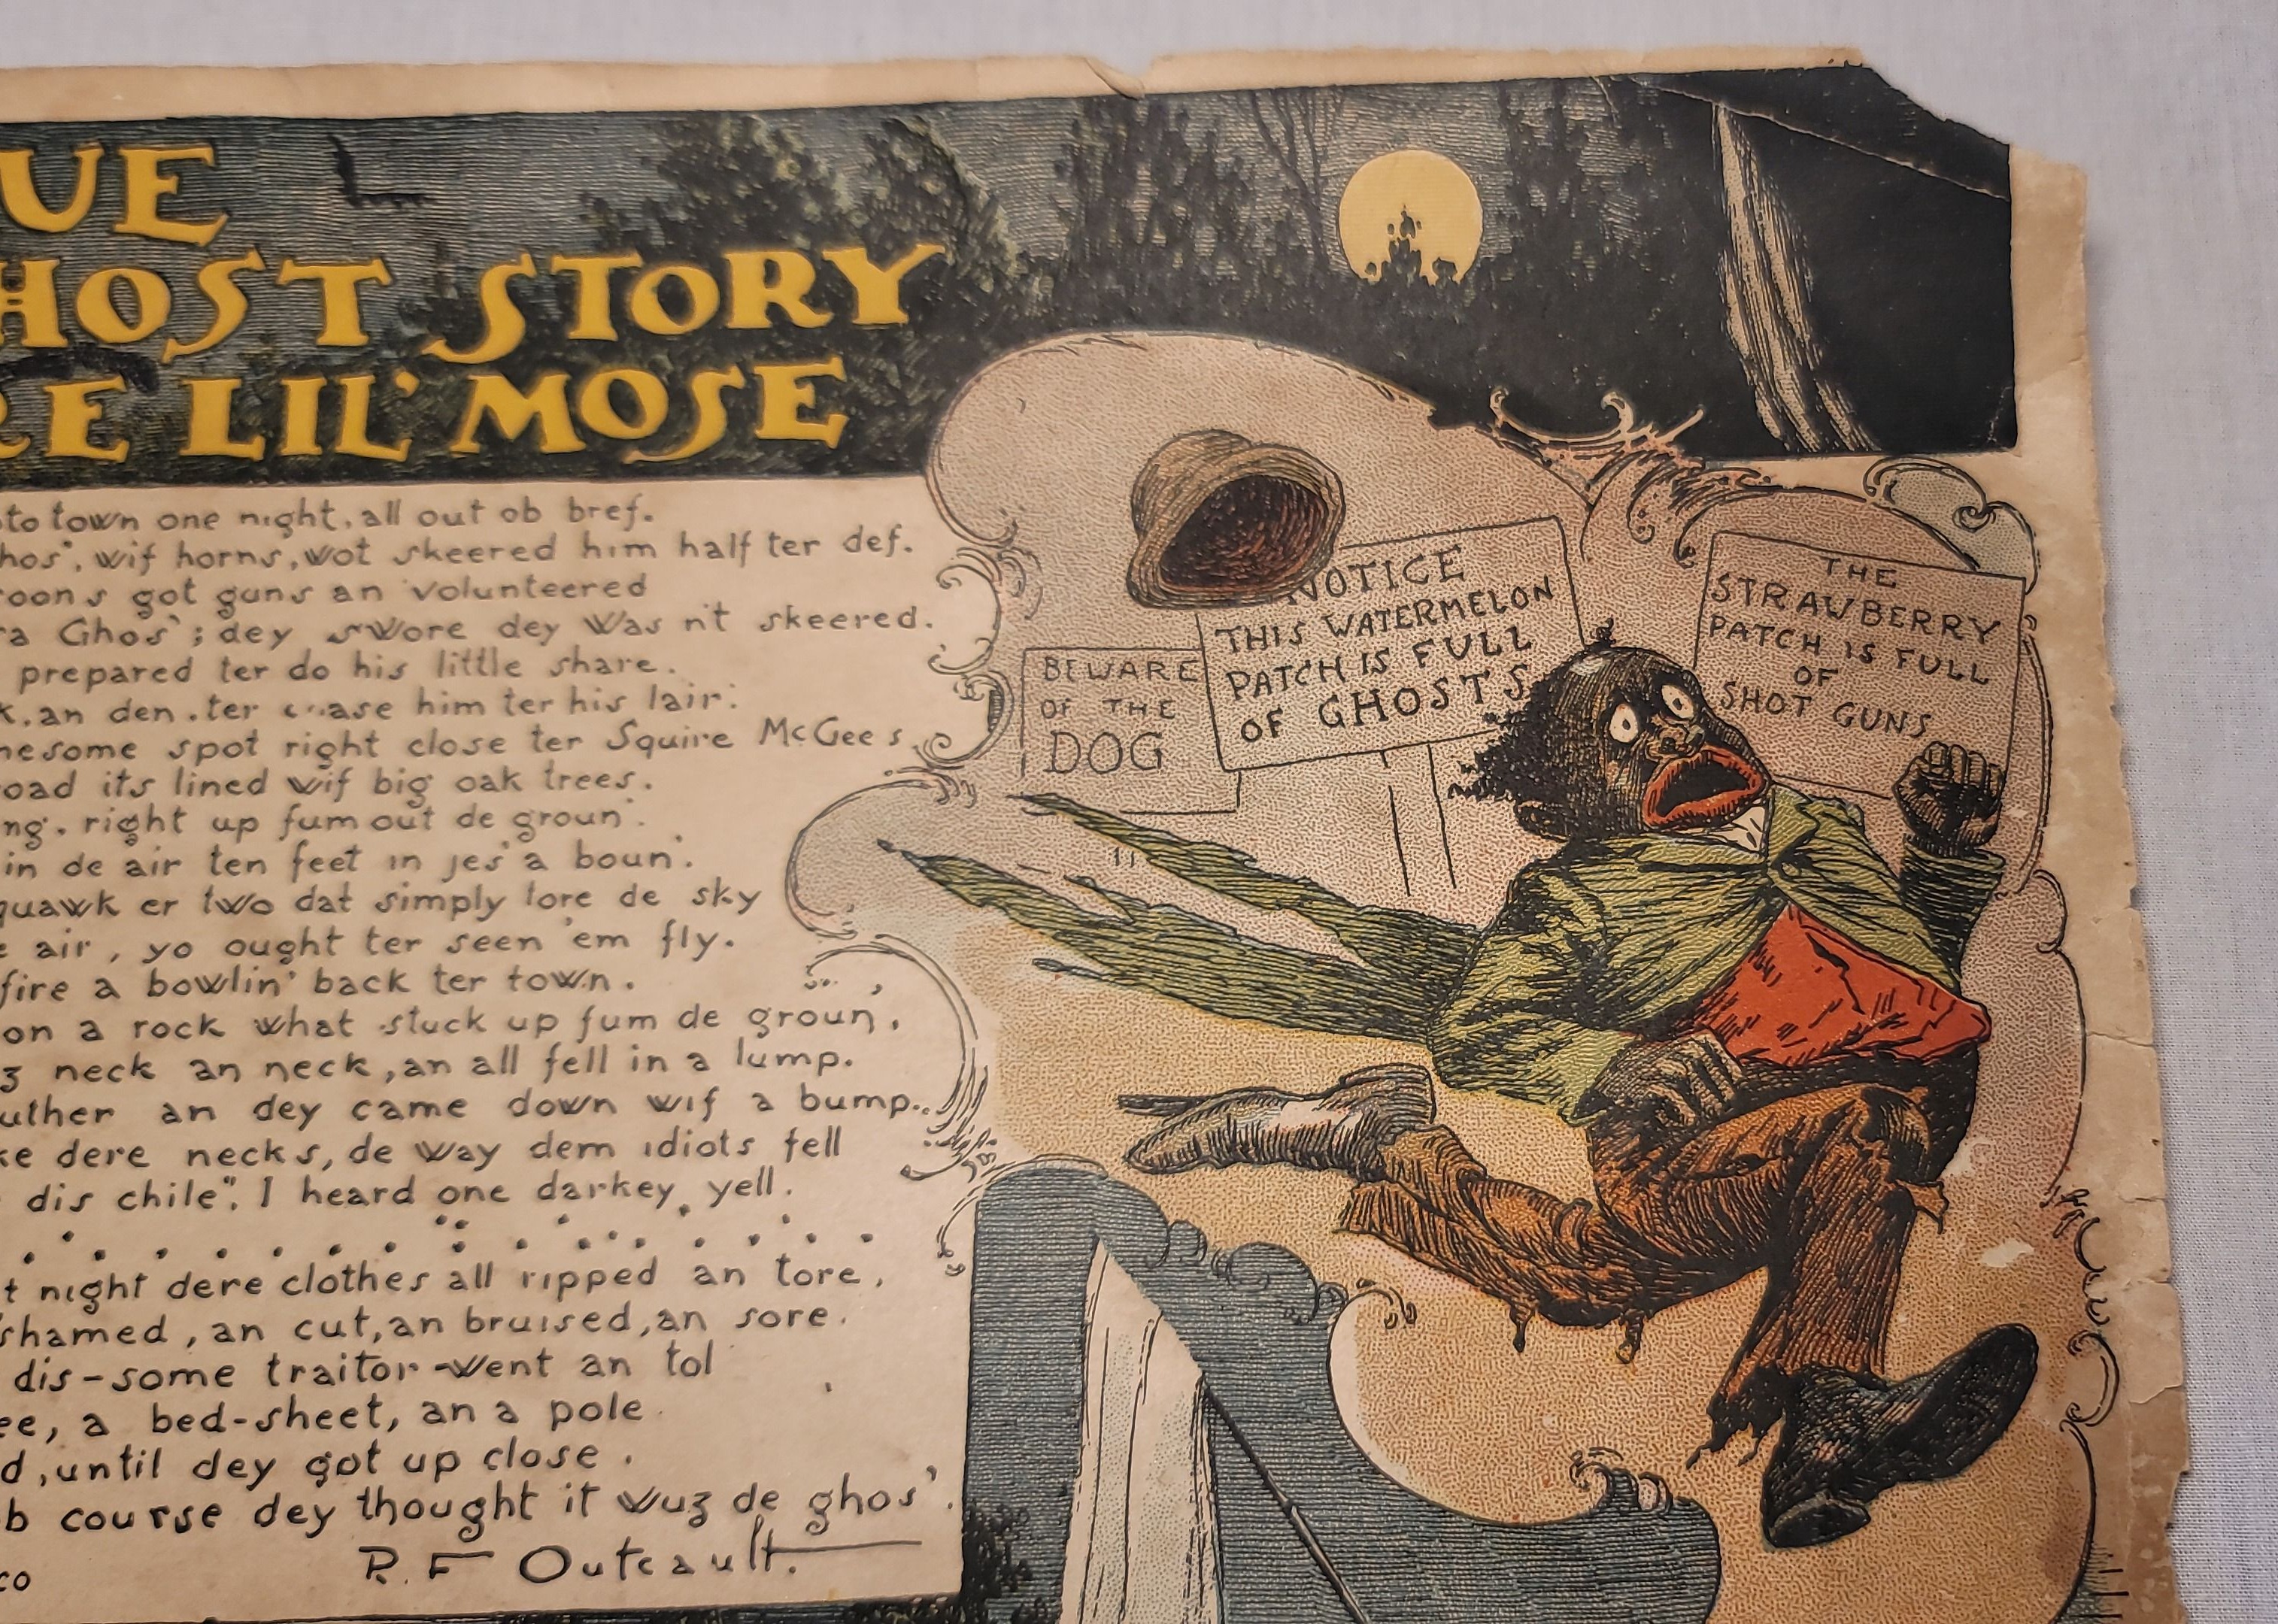 UE
HOST STORY
RE LIL' MOSE
to town one night, all out ob bref.
hos', wif horns, wot skeered him half ter def.
oons got guns an volunteered
ra Ghos'; dey swore dey was n't skeered.
prepared ter do his little share.
k, an den, ter chase him ter his lair:
nesome spot right close ter Squire McGees
oad its lined wif big oak trees.
ng. right up fum out de groun'.
in de air ten feet in jes' a boun'.
quawk er two dat simply tore de sky
e air, yo ought ter seen 'em fly.
fire a bowlin' back ter town.
on a rock what stuck up fum de groun',
z neck an neck, an all fell in a lump.
uther an dey came down wif a bump.
ke dere necks, de way dem idiots fell
dis chile", I heard one darkey yell.
t night dere clothes all ripped an tore,
shamed, an cut, an bruised, an sore.
dis-some traitor-went an tol
ee, a bed-sheet, an a pole
d, until dey got up close.
b course dey thought it wuz de ghos'.
R. F Outcault.
co
BEWARE
OF THE
DOG
NOTICE
THIS WATERMELON
PATCH IS FULL
OF GHOSTS
THE
STRAWBERRY
PATCH IS FULL
OF
SHOT GUNS